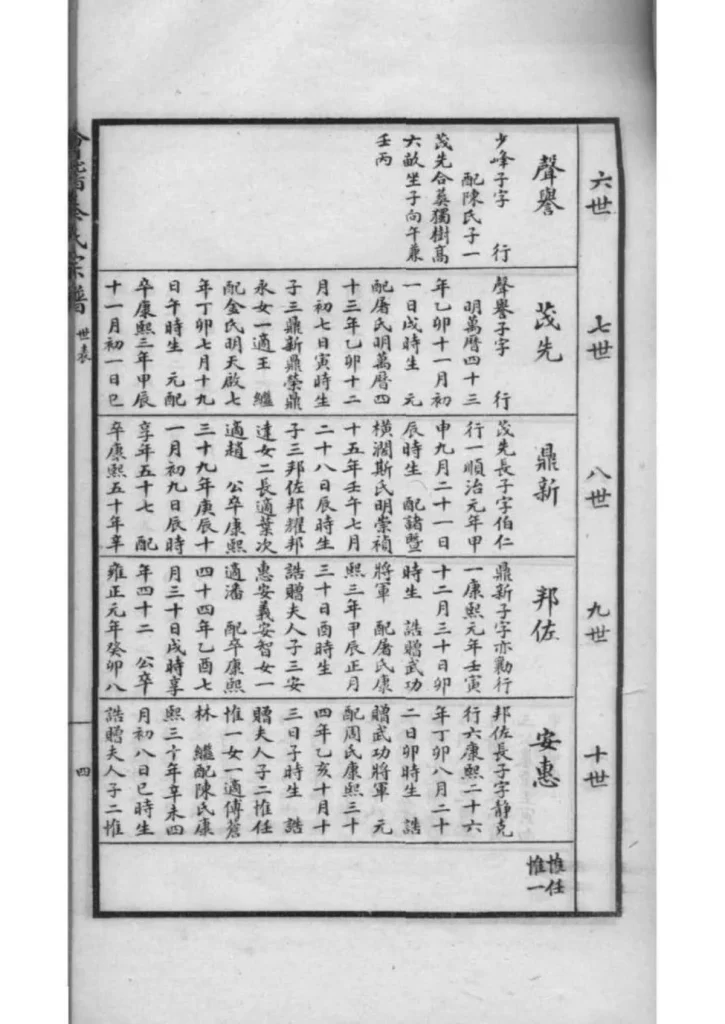 六世
聲譽
少峰子字 行
配陳氏子一
茂先合葬獨樹高
六畝坐子向午兼
壬丙
七世
茂先
聲譽子字 行
明萬曆四十三
年乙卯十一月初
一日戌時生 元
配屠氏明萬曆四
十三年乙卯十二
月初七日寅時生
子三鼎新鼎榮鼎
永女一適王 繼
配金氏明天啟七
年丁卯七月十九
日午時生 元配
卒康熙三年甲辰
十一月初一日巳
八世
鼎新
茂先長子字伯仁
行一順治元年甲
申九月二十一日
辰時生 配諸暨
橫濶斯氏明崇禎
十五年壬午七月
二十八日辰時生
子三邦佐邦耀邦
達女二長適葉次
適趙 公卒康熙
三十九年庚辰十
一月初九日辰時
享年五十七 配
卒康熙五十年辛
九世
邦佐
鼎新子字亦勷行
一康熙元年壬寅
十二月三十日卯
時生 誥贈武功
將軍 配屠氏康
熙三年甲辰正月
三十日酉時生
誥贈夫人子三安
惠安義安智女一
適潘 配卒康熙
四十四年乙酉七
月三十日戌時享
年四十二 公卒
雍正元年癸卯八
十世
安惠
邦佐長子字靜克
行六康熙二十六
年丁卯八月二十
二日卯時生 誥
贈武功將軍 元
配周氏康熙三十
四年乙亥十月十
三日子時生 誥
贈夫人子二惟任
惟一女一適傅蒼
林 繼配陳氏康
熙三十年辛未四
月初八日巳時生
誥贈夫人子二惟
惟任
惟一
氏宗譜
世表
四